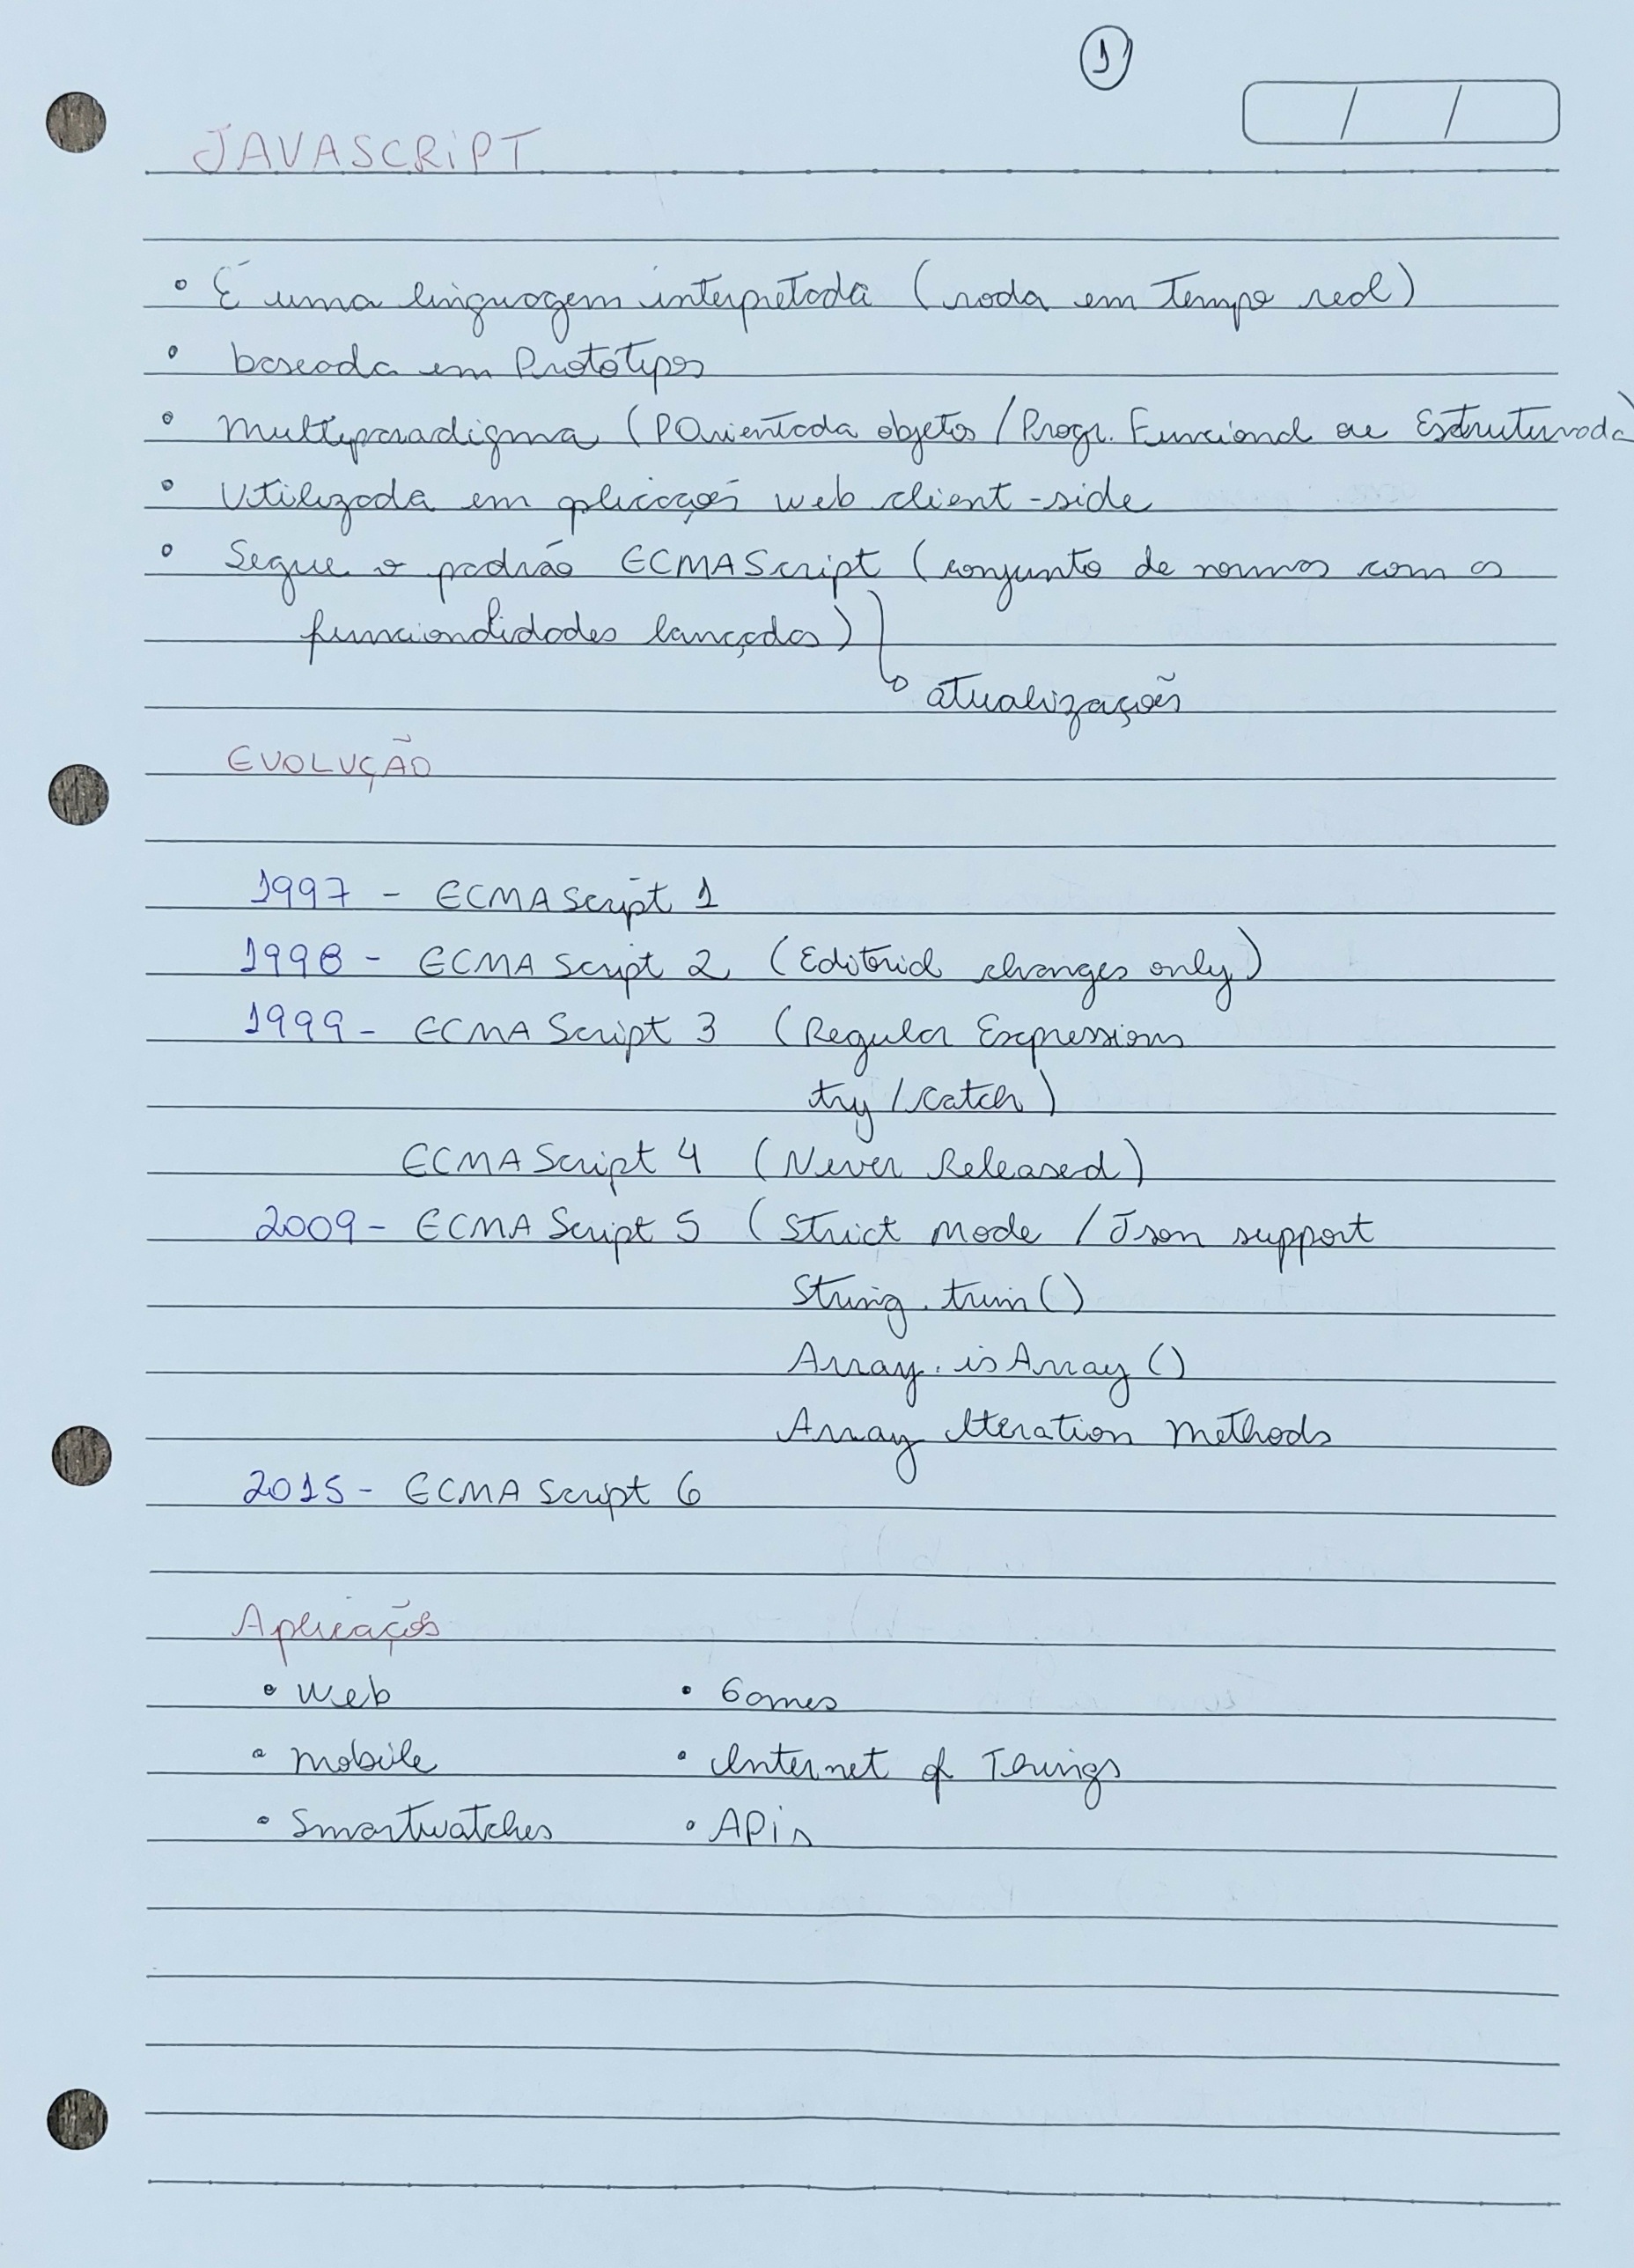 1
JAVASCRIPT
• É uma linguagem interpretada (roda em tempo real)
• baseada em Protótipos
• Multiparadigma (POrientada objetos / Progr. Funcional ou Estruturada)
• Utilizada em aplicações web client-side
• Segue o padrão ECMAScript (conjunto de normas com as
funcionalidades lançadas)
atualizações
EVOLUÇÃO
1997 - ECMAScript 1
1998 - ECMAScript 2 (Editorial changes only)
1999 - ECMAScript 3 (Regular Expressions
try/catch)
ECMAScript 4 (Never Released)
2009 - ECMAScript 5 (Strict Mode / Json support
String.trim()
Array.isArray()
Array Iteration Methods
2015 - ECMAScript 6
Aplicações
• Web • Games
• Mobile • Internet of Things
• Smartwatches • APis